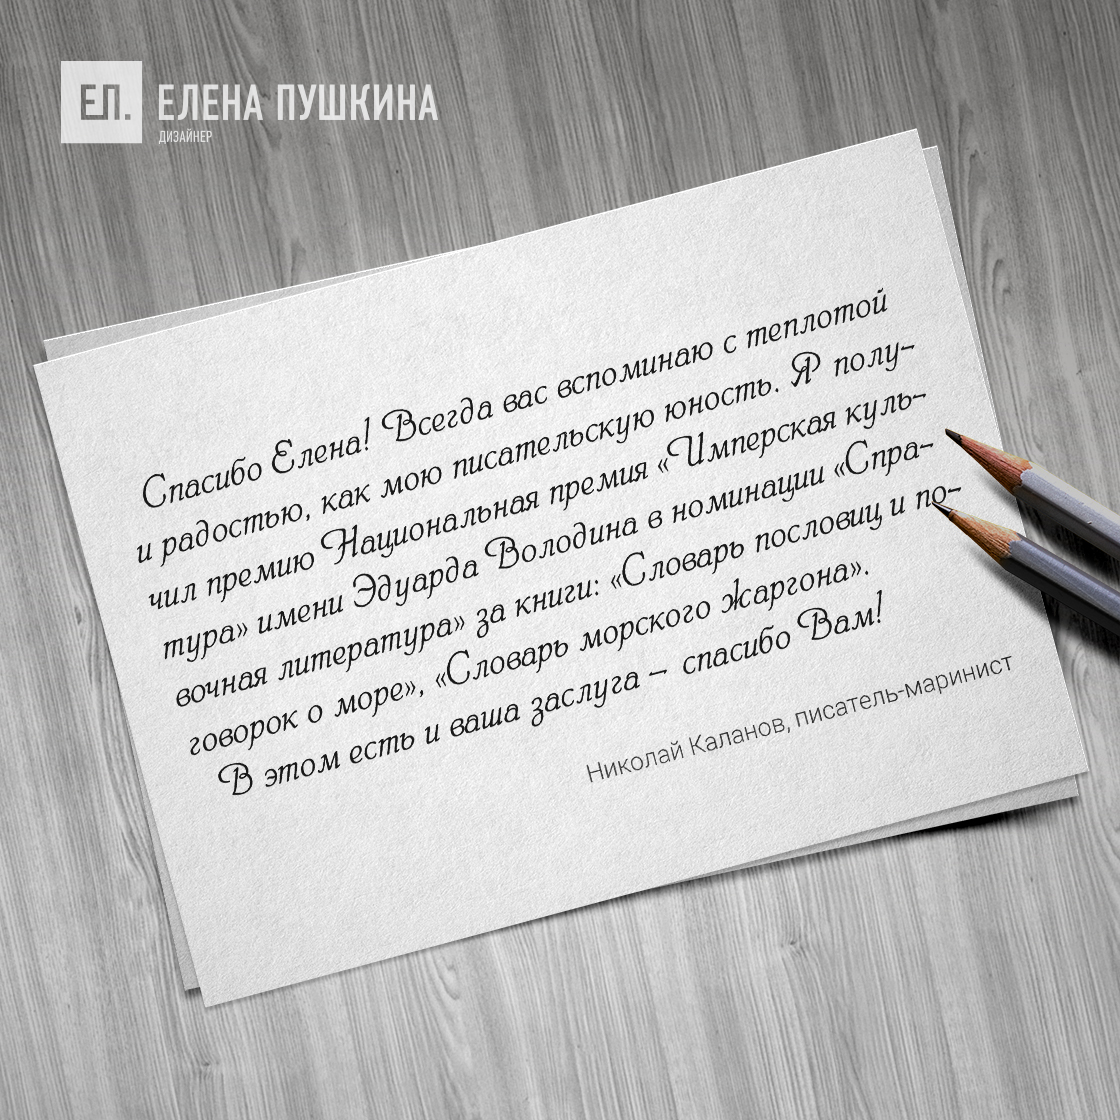 ЕП.
ЕЛЕНА ПУШКИНА
ДИЗАЙНЕР
Спасибо Елена! Всегда вас вспоминаю с теплотой
и радостью, как мою писательскую юность. Я полу-
чил премию Национальная премия «Имперская куль-
тура» имени Эдуарда Володина в номинации «Спра-
вочная литература» за книги: «Словарь пословиц и по-
говорок о море», «Словарь морского жаргона».
В этом есть и ваша заслуга – спасибо Вам!
Николай Каланов, писатель-маринист